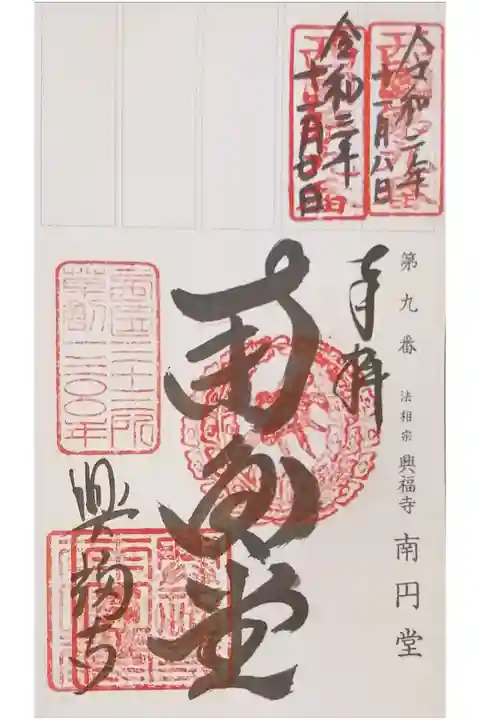 令和二年
十一月八日
令和三年
十一月廿日
第九番 法相宗 興福寺 南円堂
奉拝
南円堂
西国三十三所
草創一三〇〇年
興福寺